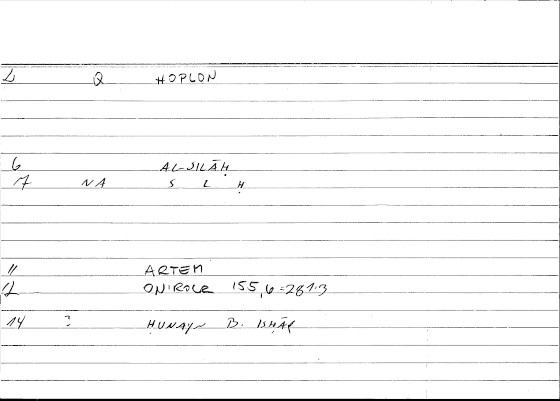 2 Q HOPLON
6 AL-SILĀḤ
7 NA S L Ḥ
11 ARTEM
12 ONIROCR 155,6=281.3
14 : ḤUNAYN B. ISḤĀQ